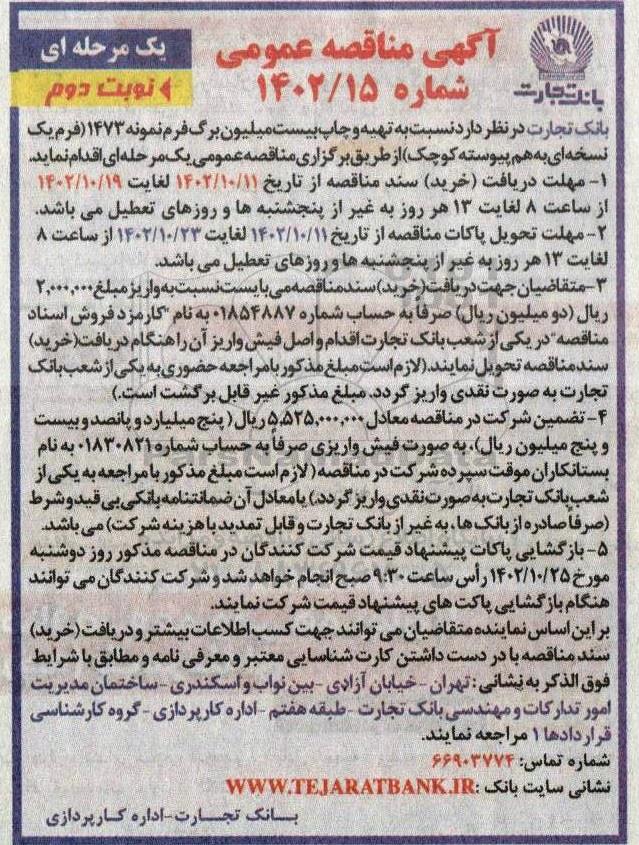 آگهی مناقصه عمومی
شماره ۱۴۰۲/۱۵
یک مرحله ای
نوبت دوم
بانک تجارت
بانک تجارت در نظر دارد نسبت به تهیه و چاپ بیست میلیون برگ فرم نمونه ۱۴۷۳ (فرم یک
نسخه‌ای به هم پیوسته کوچک) از طریق برگزاری مناقصه عمومی یک مرحله ای اقدام نماید.
۱- مهلت دریافت (خرید) سند مناقصه از تاریخ ۱۴۰۲/۱۰/۱۱ لغایت ۱۴۰۲/۱۰/۱۹
از ساعت ۸ لغایت ۱۳ هر روز به غیر از پنجشنبه ها و روزهای تعطیل می باشد.
۲- مهلت تحویل پاکات مناقصه از تاریخ ۱۴۰۲/۱۰/۱۱ لغایت ۱۴۰۲/۱۰/۲۳ از ساعت ۸
لغایت ۱۳ هر روز به غیر از پنجشنبه ها و روزهای تعطیل می باشد.
۳- متقاضیان جهت دریافت (خرید) سند مناقصه می بایست نسبت به واریز مبلغ ۲,۰۰۰,۰۰۰
ریال (دو میلیون ریال) صرفاً به حساب شماره ۰۱۸۵۴۸۸۷ به نام "کارمزد فروش اسناد
مناقصه" در یکی از شعب بانک تجارت اقدام و اصل فیش واریز آن را هنگام دریافت (خرید)
سند مناقصه تحویل نمایند. (لازم است مبلغ مذکور با مراجعه حضوری به یکی از شعب بانک
تجارت به صورت نقدی واریز گردد. مبلغ مذکور غیر قابل برگشت است.)
۴- تضمین شرکت در مناقصه معادل ۵,۵۲۵,۰۰۰,۰۰۰ ریال ( پنج میلیارد و پانصد و بیست
و پنج میلیون ریال)، به صورت فیش واریزی صرفاً به حساب شماره ۰۱۸۳۰۸۲۱ به نام
بستانکاران موقت سپرده شرکت در مناقصه ( لازم است مبلغ مذکور با مراجعه به یکی از
شعب بانک تجارت به صورت نقدی واریز گردد.) یا معادل آن ضمانتنامه بانکی بی قید و شرط
(صرفاً صادره از بانک ها، به غیر از بانک تجارت و قابل تمدید با هزینه شرکت) می باشد.
۵- بازگشایی پاکات پیشنهاد قیمت شرکت کنندگان در مناقصه مذکور روز دوشنبه
مورخ ۱۴۰۲/۱۰/۲۵ رأس ساعت ۹:۳۰ صبح انجام خواهد شد و شرکت کنندگان می توانند
هنگام بازگشایی پاکت های پیشنهاد قیمت شرکت نمایند.
بر این اساس نماینده متقاضیان می توانند جهت کسب اطلاعات بیشتر و دریافت (خرید)
سند مناقصه با در دست داشتن کارت شناسایی معتبر و معرفی نامه و مطابق با شرایط
فوق الذکر به نشانی : تهران - خیابان آزادی - بین نواب و اسکندری - ساختمان مدیریت
امور تدارکات و مهندسی بانک تجارت - طبقه هفتم - اداره کارپردازی - گروه کارشناسی
قراردادها ۱ مراجعه نمایند.
شماره تماس: ۶۶۹۰۳۷۷۴
نشانی سایت بانک : WWW.TEJARATBANK.IR
بانک تجارت - اداره کارپردازی